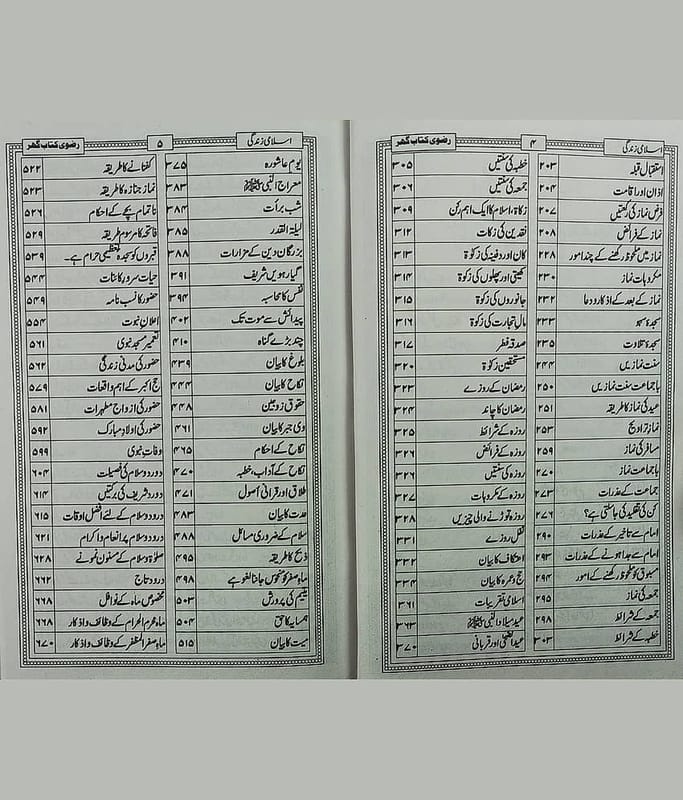 اسلامی زندگی ۴ رضوی کتاب گھر
استقبال قبلہ ۲۰۳
اذان اور اقامت ۲۰۴
فرض نماز کی رکعتیں ۲۰۷
نماز کے فرائض ۲۰۸
نماز میں ملحوظ رکھنے کے چند امور ۲۲۸
مکروہات نماز ۲۳۰
نماز کے بعد کے اذکار و دعا ۲۳۲
سجدۂ سہو ۲۳۳
سجدۂ تلاوت ۲۳۵
سنت نمازیں ۲۴۴
باجماعت سنت نمازیں ۲۵۰
عید کی نماز کا طریقہ ۲۵۱
نماز تراویح ۲۵۳
مسافر کی نماز ۲۵۹
باجماعت نماز ۲۷۰
جماعت کے عذرات ۲۷۳
کن کی تقلید کی جا سکتی ہے؟ ۲۷۶
امام سے تاخیر کے عذرات ۲۹۰
امام سے جدا ہونے کے عذرات ۲۹۳
مسبوق کو ملحوظ رکھنے کے امور ۲۹۴
جمعہ کی نماز ۲۹۵
جمعہ کے شرائط ۲۹۸
خطبہ کے شرائط ۳۰۳
خطبہ کی سنتیں ۳۰۵
جمعہ کی سنتیں ۳۰۶
زکاۃ، اسلام کا ایک اہم رکن ۳۰۹
نقدین کی زکات ۳۱۲
کان اور دفینہ کی زکوٰۃ ۳۱۳
کھیتی اور پھلوں کی زکوٰۃ ۳۱۴
جانوروں کی زکوٰۃ ۳۱۵
مال تجارت کی زکوٰۃ ۳۱۶
صدقہ فطر ۳۱۷
مستحقین زکوٰۃ ۳۲۰
رمضان کے روزے ۳۲۳
رمضان کا چاند ۳۲۴
روزہ کے شرائط ۳۲۵
روزہ کے فرائض ۳۲۶
روزہ کی سنتیں ۳۲۶
روزہ کے مکروہات ۳۲۷
روزہ کو توڑنے والی چیزیں ۳۲۸
نفل روزے ۳۳۱
اعتکاف کا بیان ۳۳۲
حج و عمرہ کا بیان ۳۳۴
اسلامی تقریبات ۳۶۱
عید میلاد النبی ﷺ ۳۶۳
عید الضحیٰ اور قربانی ۳۷۰
اسلامی زندگی ۵ رضوی کتاب گھر
یوم عاشورہ ۳۷۵
معراج النبی ﷺ ۳۸۳
شب برأت ۳۸۴
لیلۃ القدر ۳۸۵
بزرگان دین کے مزارات ۳۸۸
گیارہویں شریف ۳۹۱
نفس کا محاسبہ ۳۹۴
پیدائش سے موت تک ۴۰۲
چند بڑے گناہ ۴۱۰
بلوغ کا بیان ۴۳۹
نکاح کا بیان ۴۴۴
حقوق زوجین ۴۴۸
ولی جبر کا بیان ۴۶۱
نکاح کے احکام ۴۶۵
نکاح کے آداب، خطبہ ۴۷۰
طلاق اور قرآنی اصول ۴۷۱
عدت کا بیان ۴۸۳
سلام کے ضروری مسائل ۴۸۸
ذبح کا طریقہ ۴۹۵
ماہ صفر کو منحوس جاننا لغو ہے ۴۹۸
یتیم کی پرورش ۵۰۳
ہمسایہ کا حق ۵۰۴
میت کا بیان ۵۱۵
کفنانے کا طریقہ ۵۲۲
نماز جنازہ کا طریقہ ۵۲۳
ناتمام بچے کے احکام ۵۲۶
فاتحہ کا مرسوم طریقہ ۵۲۹
قبروں کو سجدۂ تعظیمی حرام ہے۔ ۵۳۹
حیات سرور کائنات ۵۴۴
حضور کا نسب نامہ ۵۴۹
اعلان نبوت ۵۵۴
تعمیر مسجد نبوی ۵۶۱
حضور کی مدنی زندگی ۵۶۲
حج اکبر کے اہم واقعات ۵۷۹
حضور کی ازواج مطہرات ۵۸۱
حضور کی اولاد مبارک ۵۹۲
وفات نبوی ۵۹۹
درود و سلام کی فضیلت ۶۰۴
درود شریف کی برکتیں ۶۱۴
درود و سلام کے لئے افضل اوقات ۶۱۵
درود و سلام پر انعام و اکرام ۶۲۱
صلوٰۃ و سلام کے مسنون نمونے ۶۲۸
درود تاج ۶۶۲
مخصوص ماہ کے نوافل ۶۶۸
ماہ محرم الحرام کے وظائف و اذکار ۶۶۸
ماہ صفر المظفر کے وظائف و اذکار ۶۷۰